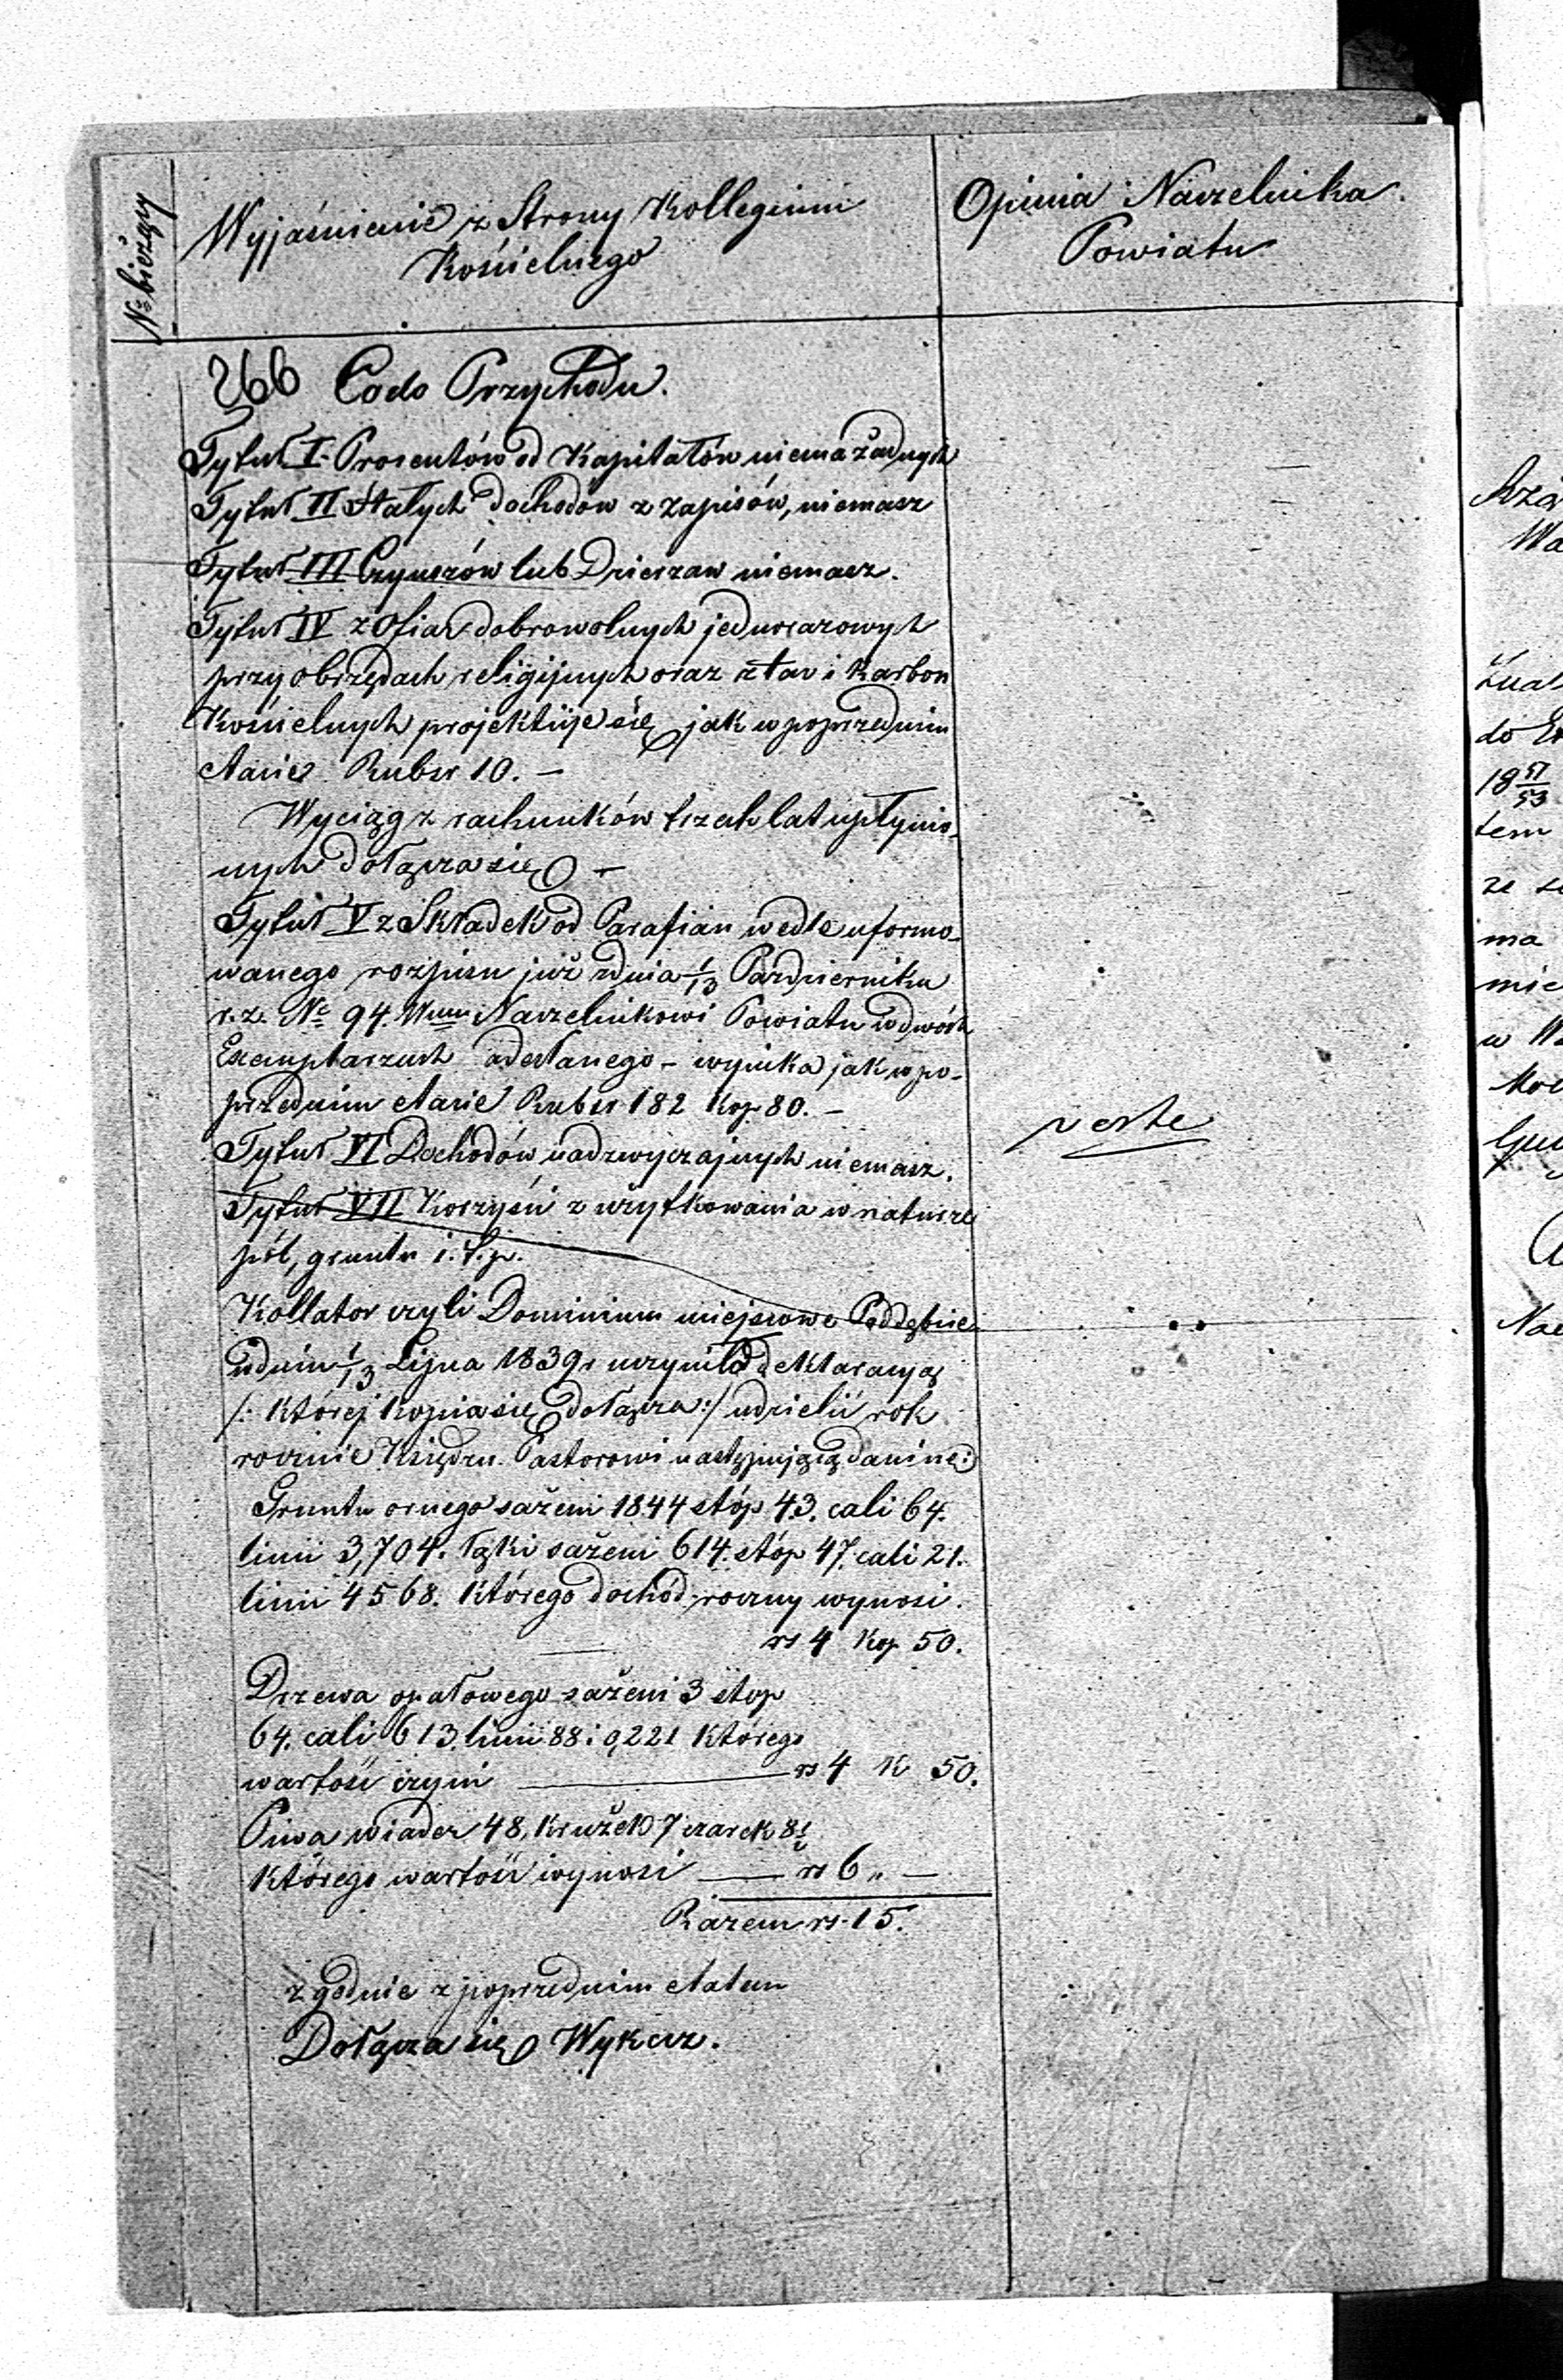 № bieżący
Wyjaśnienie z Strony Kollegium
Kościelnego
Opinia Naczelnika
Powiatu
266 Co do Przychodu.
Tytuł I. Procentów od Kapitałów niema żadnych
Tytuł II Stałych dochodów z zapisów, niemasz
Tytuł III Czynszów lub Dzierzaw niemasz.
Tytuł IV z Ofiar dobrowolnych jednorazowych
przy obrzędach religijnych oraz z tac i karbon
Kościelnych projektuje się jak w poprzednim
etacie Rubsr 10. –
Wyciąg z rachunków trzech lat upłynio-
nych dołącza się –
Tytuł V z Składek od Parafian wedle uformo-
wanego rozpisu już z dnia 1/13 Pazdziernika
r. z. № 94. Wmu Naczelnikowi Powiatu w dwóch
Exemplarzach odesłanego – wynika jak w po-
przednim etacie Rubsr 182 Kop 80. –
Tytuł VI Dochodów nadzwyczajnych niemasz.
Tytuł VII Korzyści z użytkowania w naturze
pól, gruntu i. t. p.
Kollator czyli Dominium miejscowe Poddębice
z dnia 1/13 Lipca 1839 r uczynił deklaracyą
/: której kopia się dołącza :/ udzielić rok
rocznie Księdzu Pastorowi następującą daninę:
Gruntu ornego sażeni 1844 stóp 43. cali 64.
linii 3,704. łąki sażeni 614. stóp 47. cali 21.
linii 4568. którego dochód roczny wynosi.
rs 4 Kop 50.
Drzewa opałowego sażeni 3 stop
64. cali 613. linii 88 i 0,221 którego
wartość czyni rs 4 K 50.
Piwa wiader 48, Krużek 7 czarek 8
którego wartość wynosi — rs 6 „ —
Razem rs. 15.
zgodnie z poprzednim etatem
Dołącza się Wykaz.